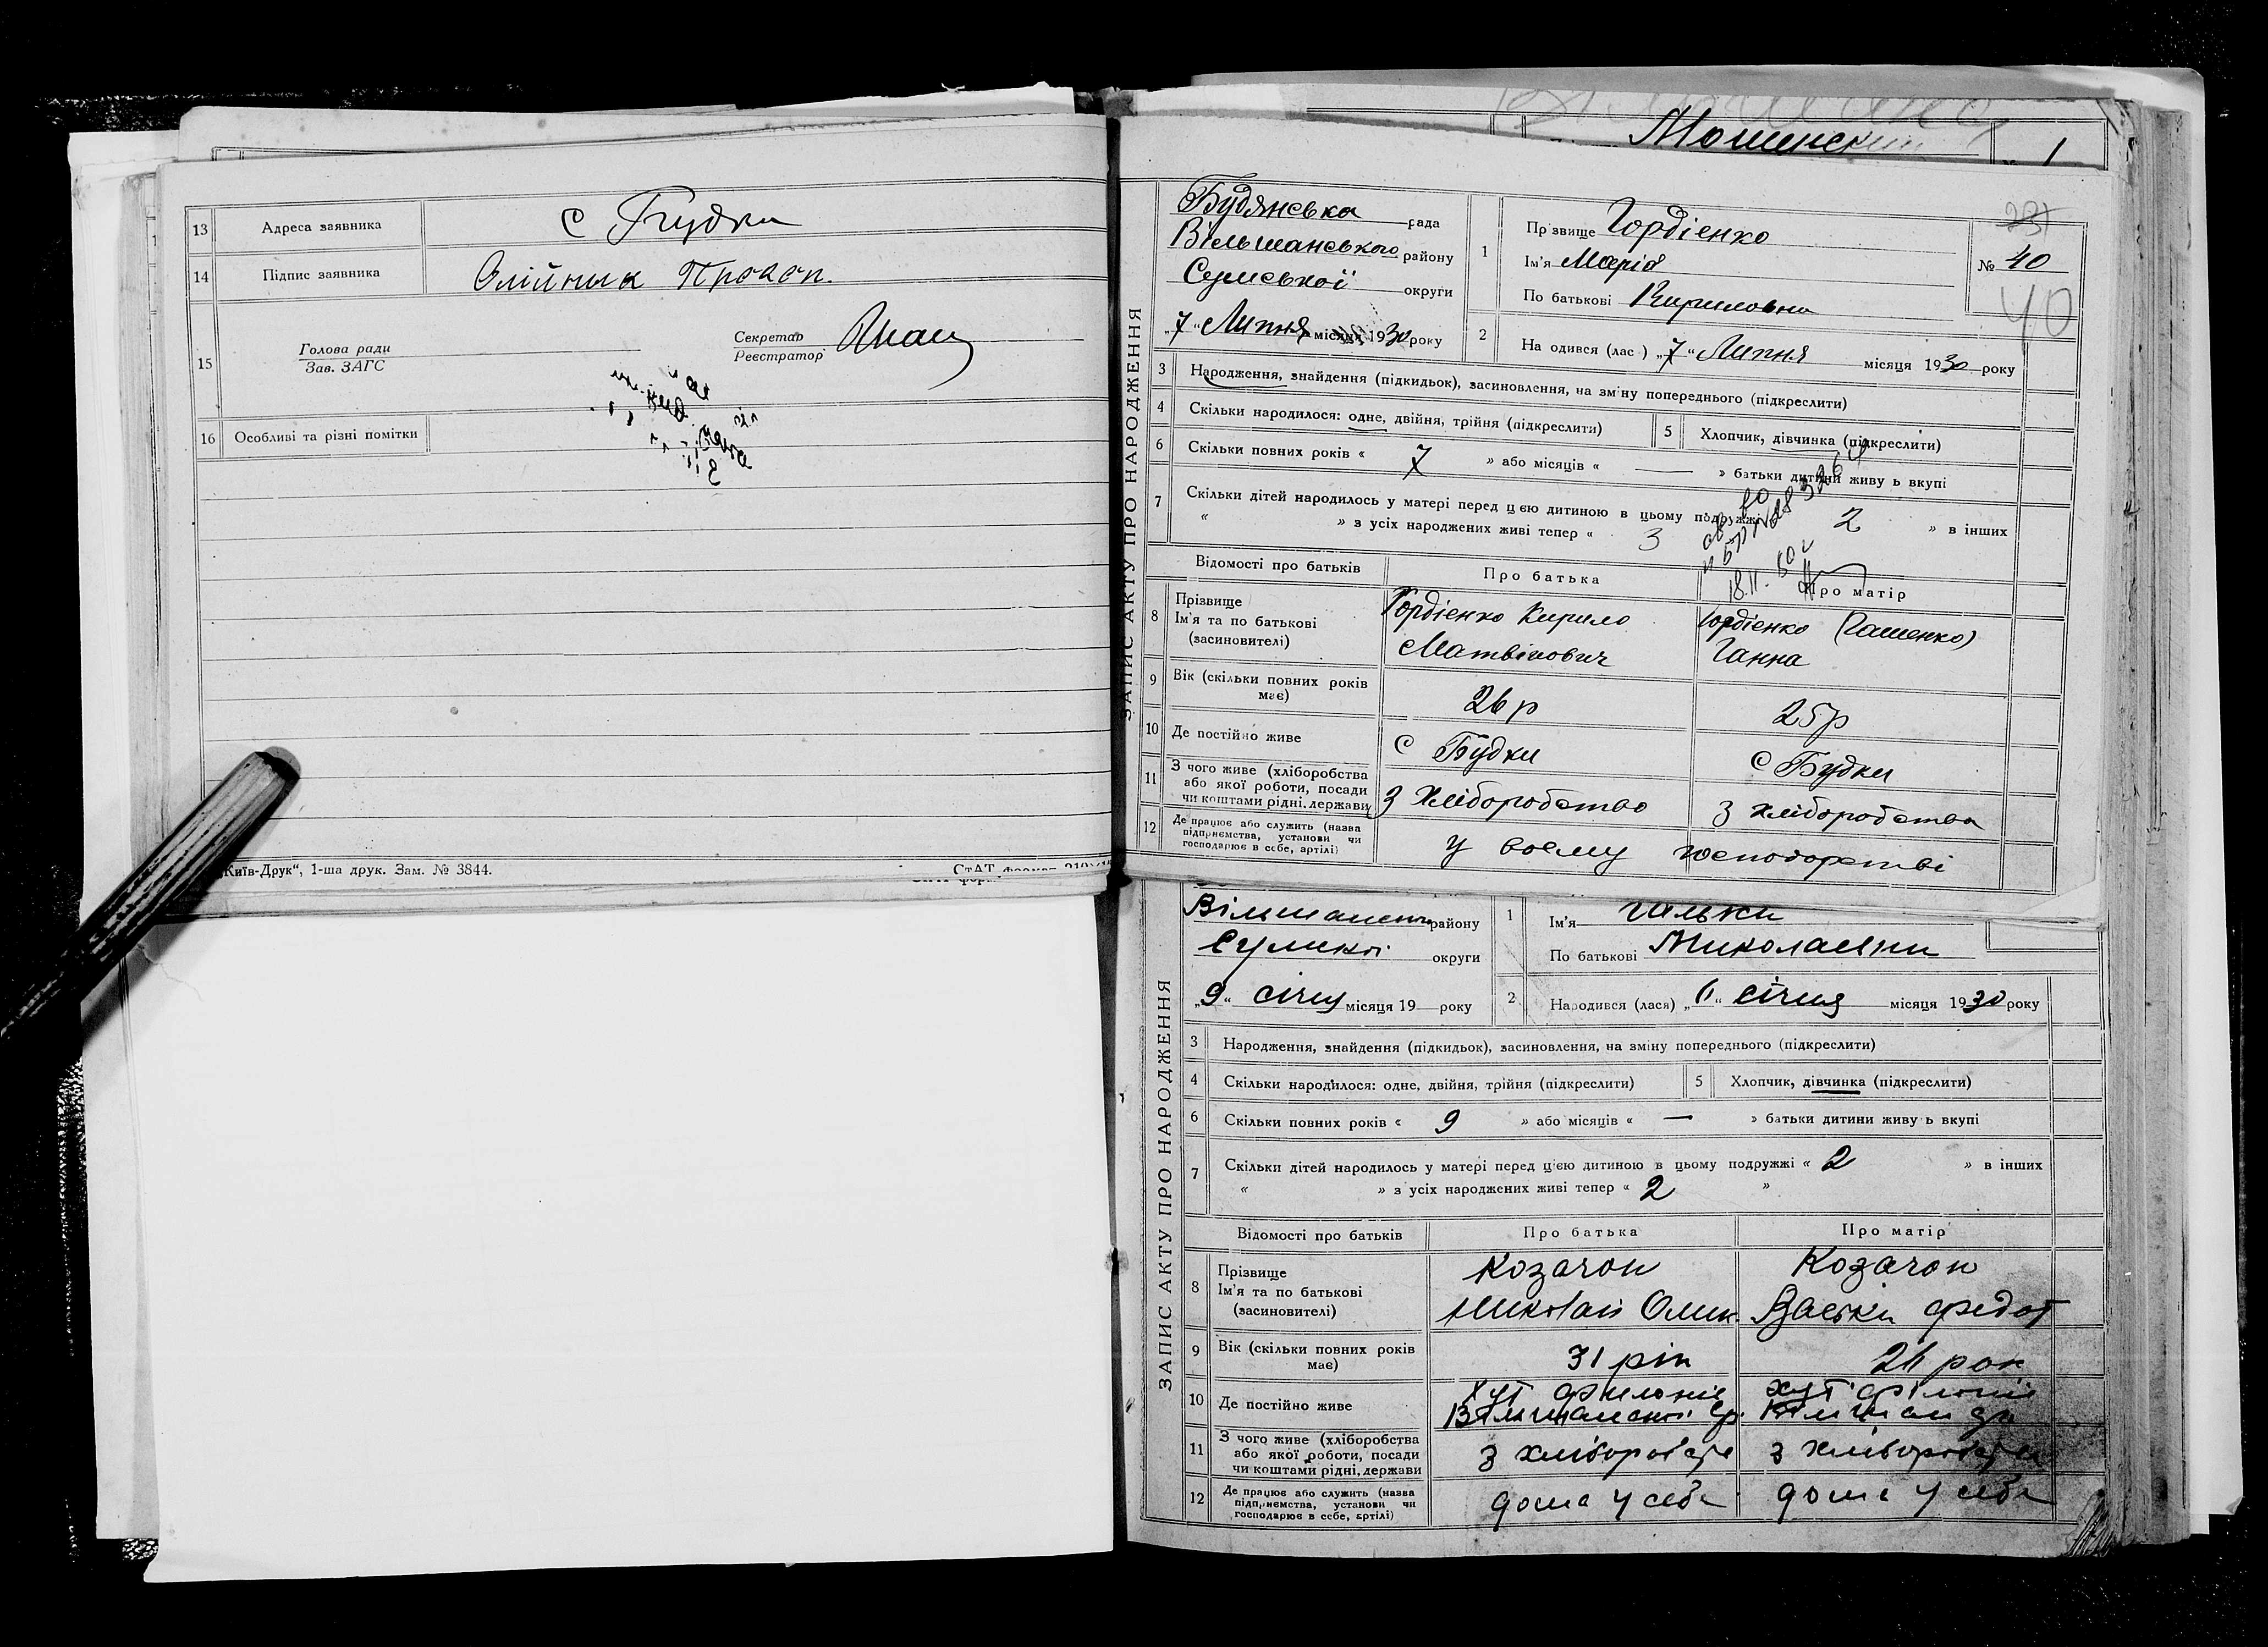 13 Адреса заявника с Будки
14 Підпис заявника Олійник Прокоп.
15 Голова ради
Зав. ЗАГС
Секретар
Реєстратор
16 Особливі та різні помітки
„Київ-Друк“, 1-ша друк. Зам. № 3844.
СтАТ формат
Мошенский
№ 1
ЗАПИС АКТУ ПРО НАРОДЖЕННЯ
Будянська рада
Вільшанського району
Сумської округи
„7“ Липня місяця 1930 року
1 Прізвище Гордієнко
Ім'я Марія
По батькові Кириловна
№ 40
40
2 На одився (лас ) „7“ Липня місяця 1930 року
3 Народження, знайдення (підкидьок), засиновлення, на зміну попереднього (підкреслити)
4 Скільки народилося: одне, двійня, трійня (підкреслити)
5 Хлопчик, дівчинка (підкреслити)
6 Скільки повних років « 7 » або місяців « — » батьки дитини живу ь вкупі
7 Скільки дітей народилось у матері перед цією дитиною в цьому подружжі 2 » в інших
« » з усіх народжених живі тепер « 3
Відомості про батьків
Про батька
Про матір
8 Прізвище
Ім'я та по батькові
(засиновителі)
Гордієнко Кирило
Матвійович
Гордієнко (Гашенко)
Ганна
9 Вік (скільки повних років
має)
26 р
25 р
10 Де постійно живе
с Будки
с Будки
11 З чого живе (хліборобства
або якої роботи, посади
чи коштами рідні, держави)
З хліборобство
З хліборобства
12 Де працює або служить (назва
підприємства, установи чи
господарює в себе, артілі)
У воєму господорстві
ЗАПИС АКТУ ПРО НАРОДЖЕННЯ
району
округи
„9“ січня місяця 19 року
1 Ім'я
По батькові Миколаевни
2 Народився (лася) „ “ січня місяця 1930 року
3 Народження, знайдення (підкидьок), засиновлення, на зміну попереднього (підкреслити)
4 Скільки народилося: одне, двійня, трійня (підкреслити)
5 Хлопчик, дівчинка (підкреслити)
6 Скільки повних років « 9 » або місяців « — » батьки дитини живу ь вкупі
7 Скільки дітей народилось у матері перед цією дитиною в цьому подружжі « 2 » в інших
« » з усіх народжених живі тепер « 2 »
Відомості про батьків
Про батька
Про матір
8 Прізвище
Ім'я та по батькові
(засиновителі)
Козачок
Николай
Козачок
Васьки Федот
9 Вік (скільки повних років
має)
31 рік
26 рок
10 Де постійно живе
хут
хут
11 З чого живе (хліборобства
або якої роботи, посади
чи коштами рідні, держави
З хлібороб
З хлібороб
12 Де працює або служить (назва
підприємства, установи чи
господарює в себе, артілі)
дома у себе
дома у себе